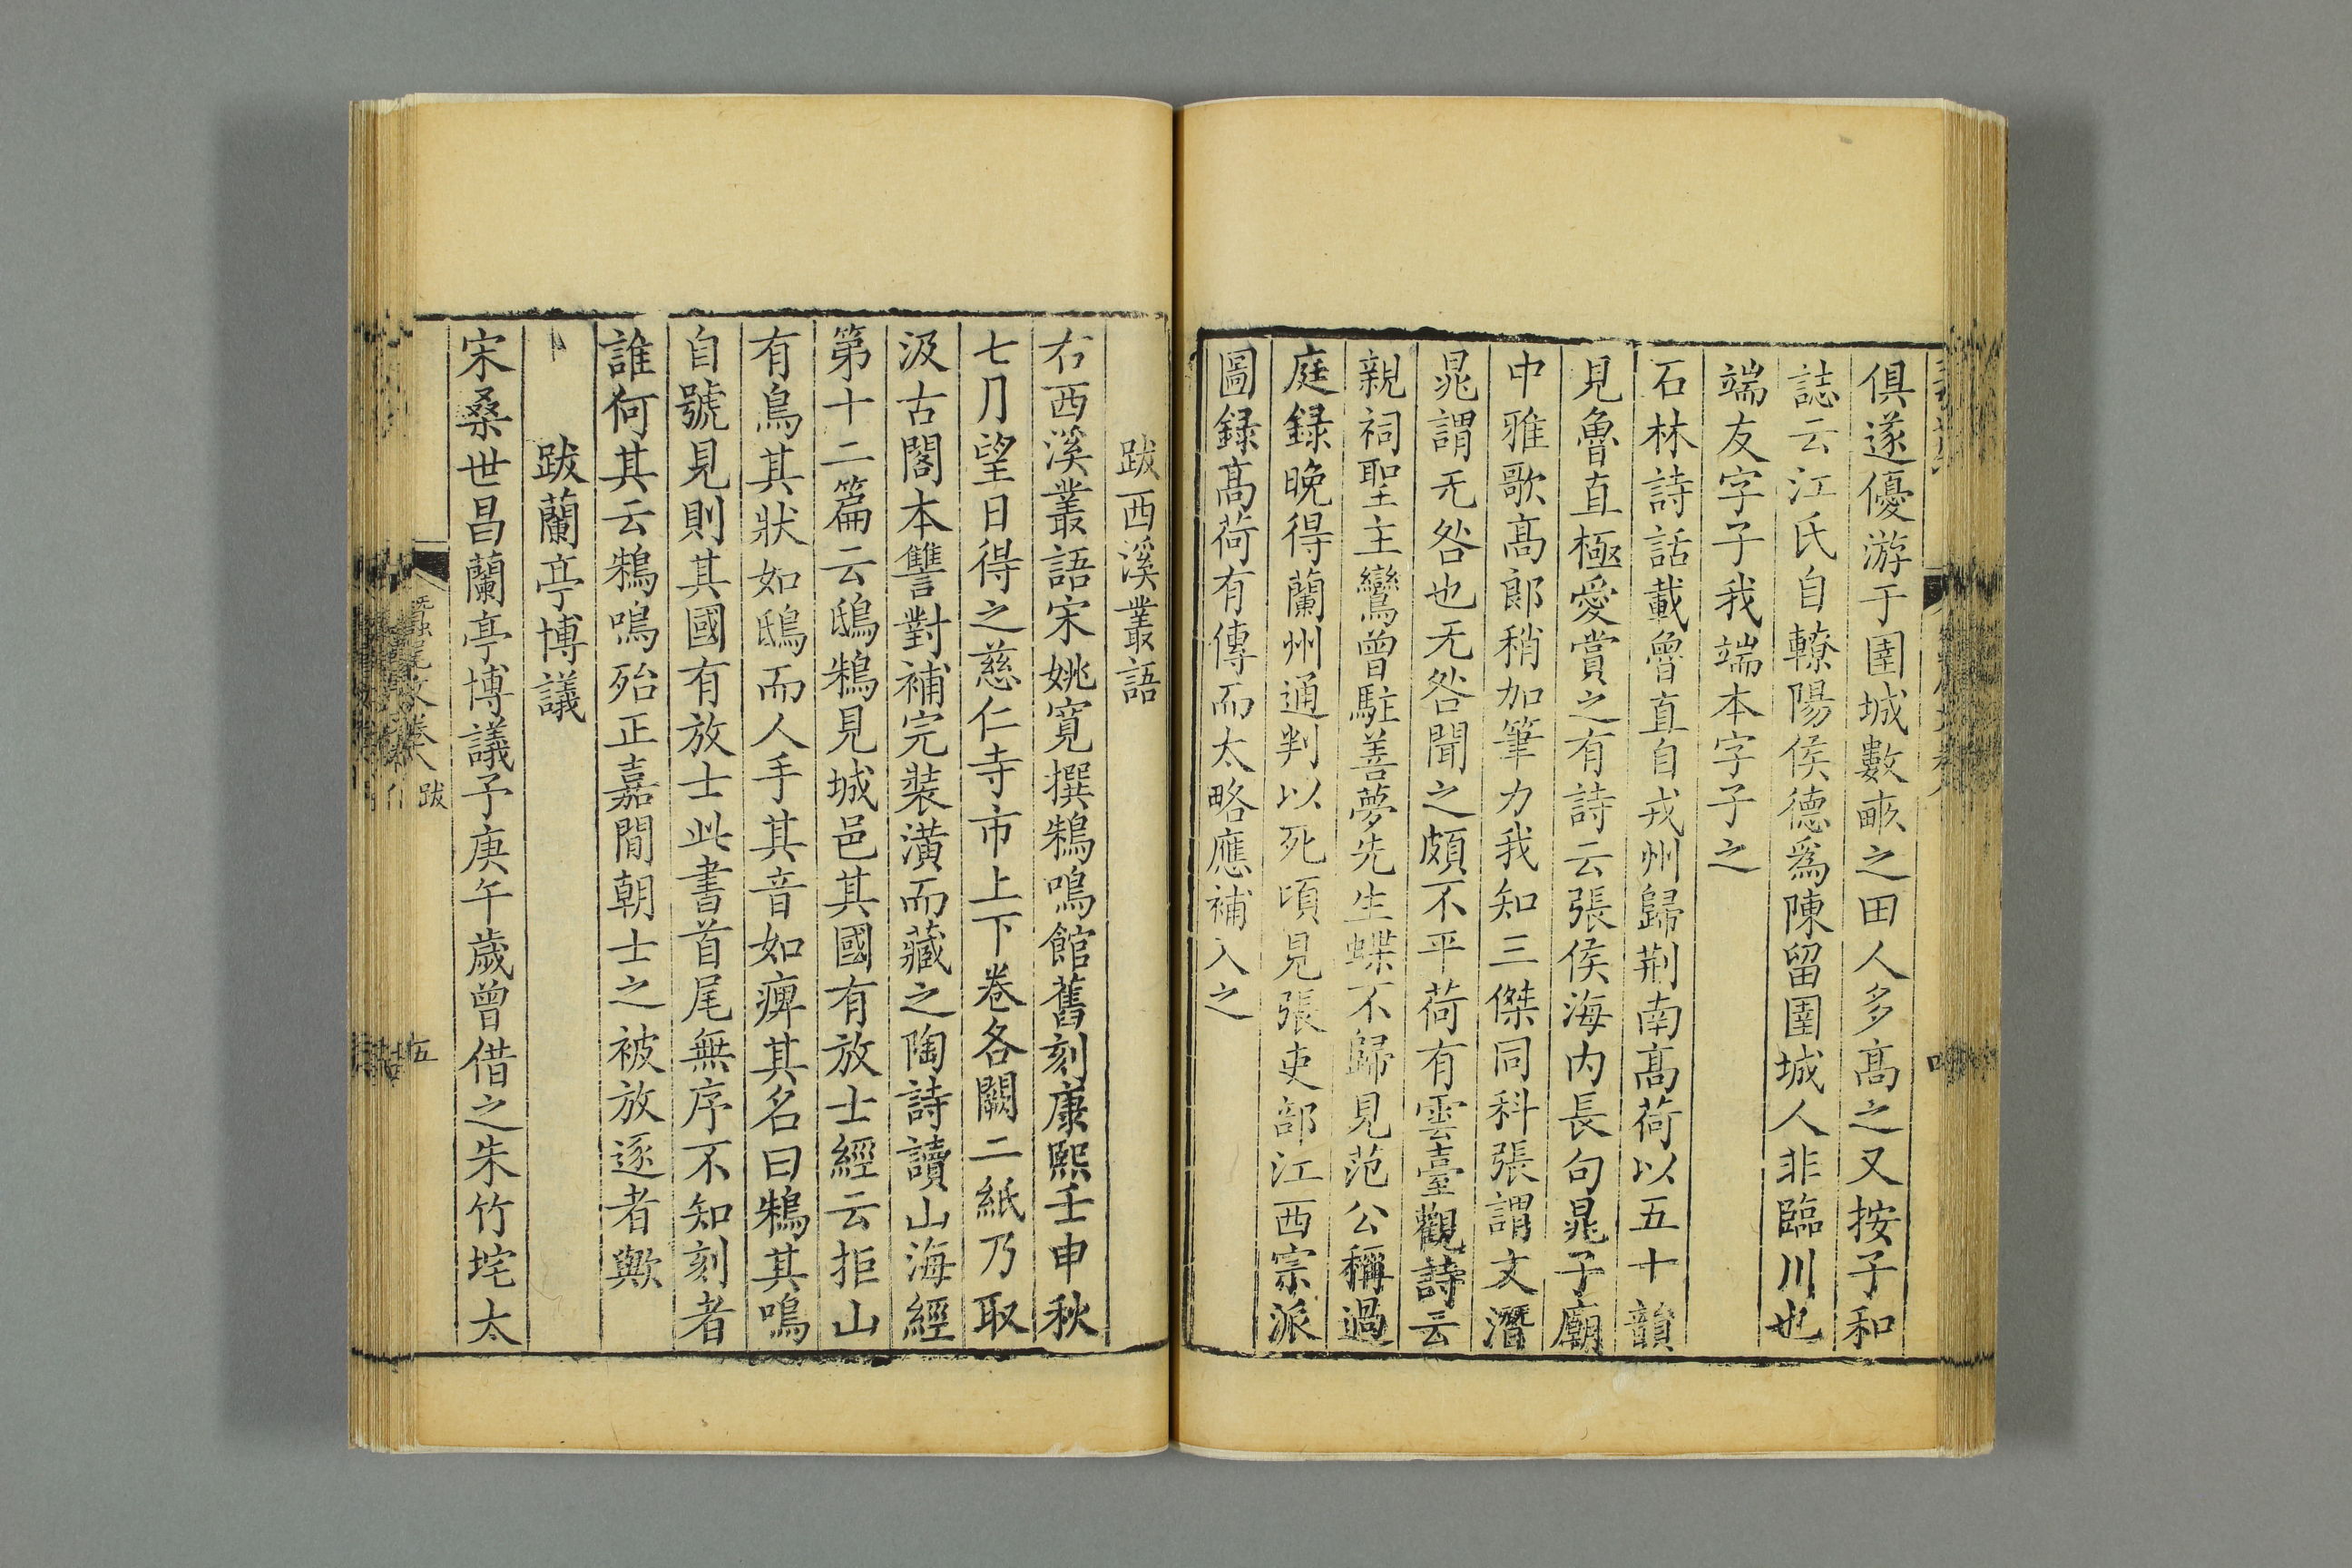 俱遂優游于圉城數畝之田人多高之又按子和
誌云江氏自轑陽侯德爲陳留圉城人非臨川也
端友字子我端本字子之
石林詩話載魯直自戎州歸荆南高荷以五十韻
見魯直極愛賞之有詩云張侯海内長句晁子廟
中雅歌高郎稍加筆力我知三傑同科張謂文潛
晁謂无咎也无咎聞之頗不平荷有雲臺觀詩云
親祠聖主鸞曾駐善夢先生蝶不歸見范公稱過
庭録晚得蘭州通判以死頃見張吏部江西宗派
圖録高荷有傳而太略應補入之
跋西溪叢語
右西溪叢語宋姚寬撰鴸鳴館舊刻康熙壬申秋
七月望日得之慈仁寺市上下卷各闕二紙乃取
汲古閣本讐對補完装潢而藏之陶詩讀山海經
第十二篇云鴟鴸見城邑其國有放士經云拒山
有鳥其狀如鴟而人手其音如痺其名曰鴸其鳴
自號見則其國有放士此書首尾無序不知刻者
誰何其云鴸鳴殆正嘉間朝士之被放逐者歟
跋蘭亭博議
宋桑世昌蘭亭博議予庚午歲曾借之朱竹垞太
蠶尾文卷八 跋
五